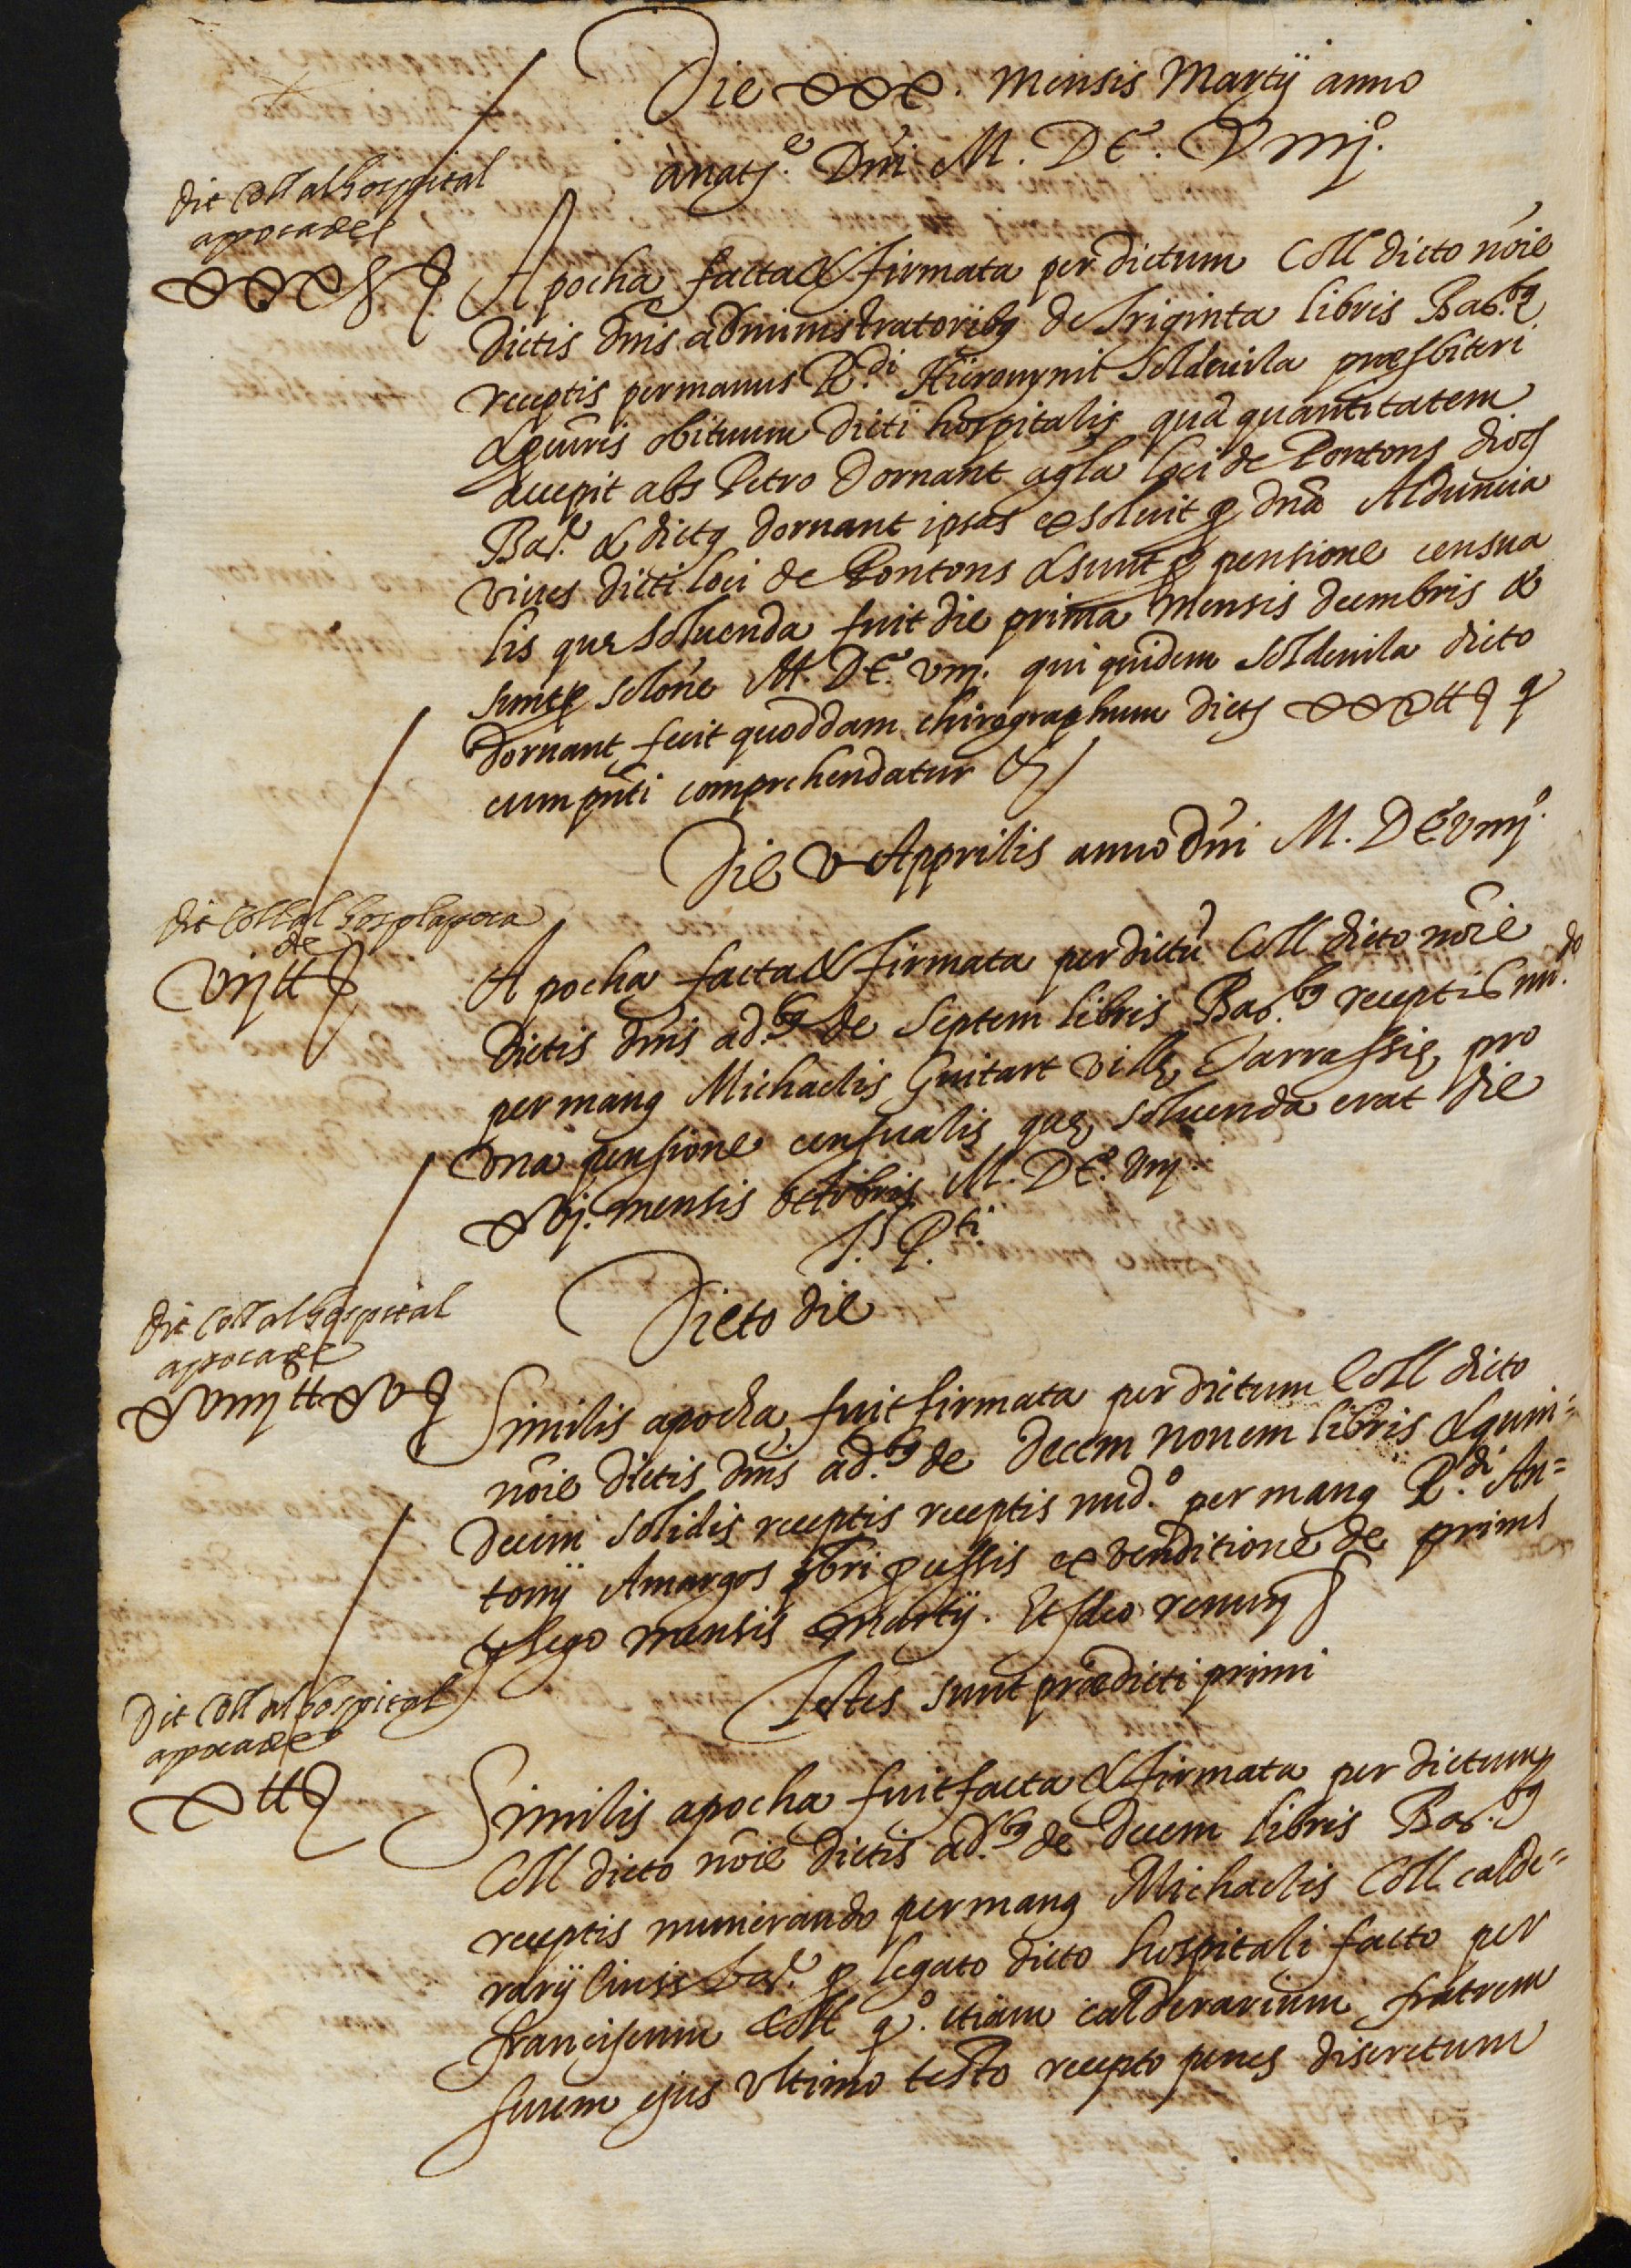 Die xxx. mensis Martij anno
a natte. Dni M. DC. Viiijº.
dit Coll al hospital
appoca de
xxx ll
Apocha facta & firmata per dictum Coll dicto nôie
dictis dnis administratoribq de Triginta libris Bar.bq
receptis per manus R.di Hieronymi Soldevila præsbiteri
obituum dicti hospitalis quā quantitatem
accepit abs Petro Dornant agla loci de Pontons dioc
Bar.e & dictq dornant ipsas exsoluit p dnā Alduncia
vives dicti loci de Pontons & sunt p pensione censua
lis quæ soluenda fuit die prima mensis decembris &
sunt p solône M. DC. viij. qui quidem soldevila dicto
Dornant fecit quoddam chirographum dictj xxx ll q
cum pnti comprehendatur &
Die v Apprilis anno Dni M. DC viiijº.
dit Coll al hospl apoca
de
vij ll
Apocha facta & firmata per dictū Coll dicto nôie
dictis dnis ad.bq de Septem libris Bar.bq receptis nu.do
per manq Michaelis Guitart villę Tarrassię, pro
una pensione censualis quę soluenda erat die
xvj. mensis octobris M. DC. viij.
T.s P.ti
Dicto die
dit Coll al hospital
appoca de
xviiij ll xv
Similis apocha, fuit firmata per dictum Coll dicto
nôie dictis dnis ad.bq de Decem Novem libris & quin=
decim solidis receptis receptis nud.º per manq R.di An=
tonij Amargos pbri ex venditione de prims
mensis martij. Et ideo renun
Testes sunt prædicti primi
Dit Coll al hospital
apoca de
x ll
Similis apocha fuit facta & firmata per dictum
Coll dicto nôie dictis ad.bq de Decem libris Bar.bq
receptis numerando per manq Michaelis Coll calde=
rarij Civis bar.e p legato dicto hospitali facto per
franciscum Coll q.º etiam calderarium fratrem
suum ejus ultimo testo recepto penes discretum